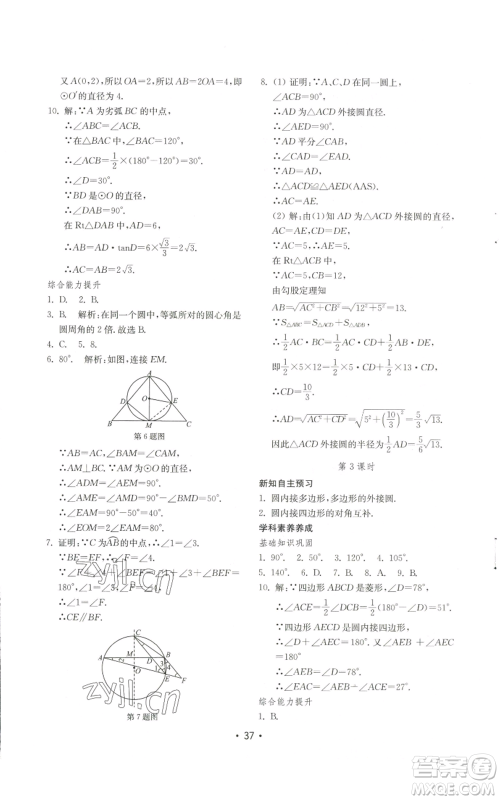 又 A(0,2),所以 OA=2,所以 AB=2OA=4,即
⊙O′的直径为 4.
10. 解:∵A 为劣弧 BC 的中点,
∴∠ABC=∠ACB.
∵在△BAC 中,∠BAC=120°,
∴∠ACB=1/2×(180°-120°)=30°.
∴∠D=30°.
∵BD 是⊙O 的直径,
∴∠BAD=90°.
在 Rt△ABD 中,AD=6,
∴AB=AD·tanD=6×√3/3=2√3.
∴AC=AB=2√3.
综合能力提升
1. D. 2. B.
3. B. 解析:在同一个圆中,等弧所对的圆心角是
圆周角的 2 倍.故选 B.
4. C. 5. 8.
6. 80°. 解析:如图,连接 EM.
A
D
O
E
B
M
C
第 6 题图
∵AB=AC,∴∠B=∠C=50°.
∴AM⊥BC.
∴∠ADM=∠AEM=90°.
∴∠AME=∠AMD=∠B=50°.
∴∠EAM=40°.
∴∠EOM=2∠EAM=80°.
7. 证明:∵C 为AB的中点,∴∠1=∠2.
∵BE=EF,∴∠F=∠4.
180°,
∴∠1=∠F.
∴CE∥BF.
C
A
B
O
E
F
第 7 题图
8. (1) 证明:∵A、C、D 在同一圆上,
∠ACB=90°,
∴AD 为△ACD 外接圆直径.
∴∠AED=90°.
∵AD 平分∠CAB,
∴∠CAD=∠EAD.
∴△ACD≌△AED(AAS).
∴AC=AE.
(2) 解:由(1)知 AD 为△ACD 外接圆的直径,
AC=AE,∠AED=90°.
∵AC=5,∴AE=5.
∵CB=12,
由勾股定理得
AB=√(AC²+CB²)=√(12²+5²)=13.
∵S△ABC=S△ACD+S△ADB,
∴1/2AC·BC=1/2AC·CD+1/2AB·DE.
∴1/2×5×12=1/2×5·CD+1/2×13·CD.
∴CD=10/3.
∴△ACD 外接圆的半径为1/2AD=5/6√13.
第 3 课时
新知自主预习
1. 圆内接多边形,多边形的外接圆.
2. 圆内接四边形的对角互补.
学科素养养成
基础知识巩固
1. 90°. 2. B. 3. C. 4. 90°.
5. 140°. 6. B. 7. B. 8. A. 9. B.
10. 解:∵四边形 ABCD 是菱形,∠D=78°,
∴∠ACE=1/2∠DCB=1/2(180°-∠D)=51°.
∵四边形 AECD 是圆内接四边形,
∴∠D+∠AEC=∠AEB+∠AEC
=180°.
∴∠AEB=∠D=78°.
∴∠EAC=∠AEB-∠ACE=27°.
综合能力提升
1. B.
• 37 •
zyjl.cn
zyjl.cn
作业精灵